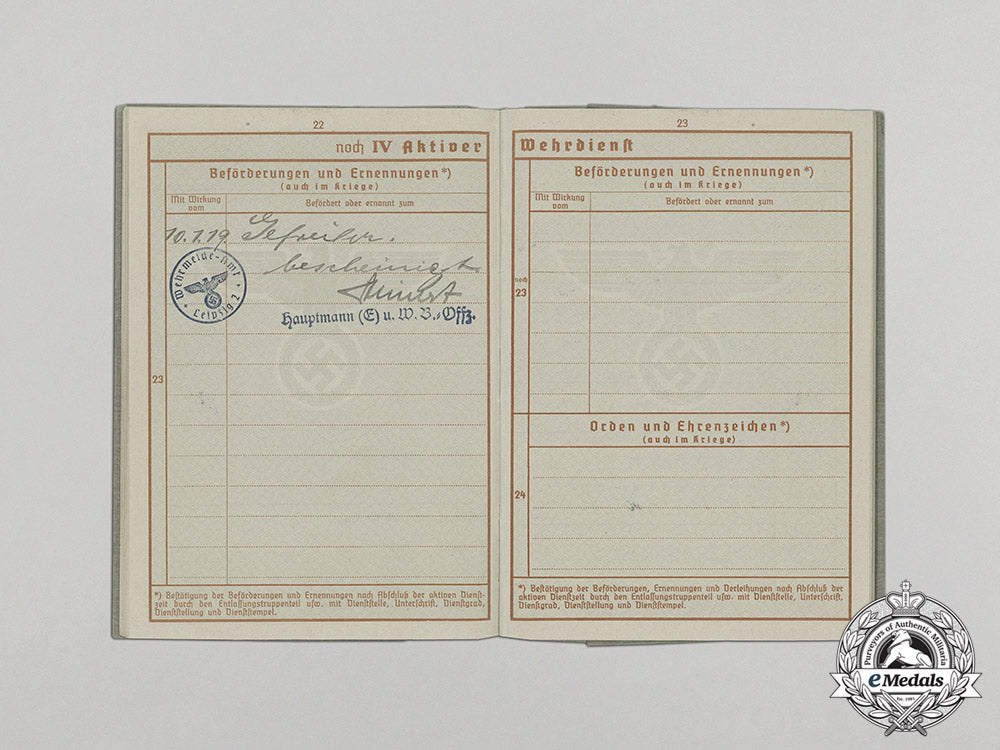 22
noch IV Aktiver
Beförderungen und Ernennungen*)
(auch im Kriege)
Mit Wirkung
vom
Befördert oder ernannt zum
10.1.19. Gefreiter.
bescheinigt
Wehrmelde-Amt
Leipzig 2
Hauptmann (E) u. W. B.-Offz.
23
*) Bestätigung der Beförderungen und Ernennungen nach Abschluß der aktiven Dienst-
zeit durch den Entlassungstruppenteil usw. mit Dienststelle, Unterschrift, Dienstgrad,
Dienststellung und Dienststempel.
23
Wehrdienst
Beförderungen und Ernennungen*)
(auch im Kriege)
Mit Wirkung
vom
Befördert oder ernannt zum
noch
23
Orden und Ehrenzeichen*)
(auch im Kriege)
24
*) Bestätigung der Beförderungen, Ernennungen und Verleihungen nach Abschluß der
aktiven Dienstzeit durch den Entlassungstruppenteil usw. mit Dienststelle, Unterschrift,
Dienstgrad, Dienststellung und Dienststempel.
Purveyors of Authentic Militaria
eMedals
Est. 1985